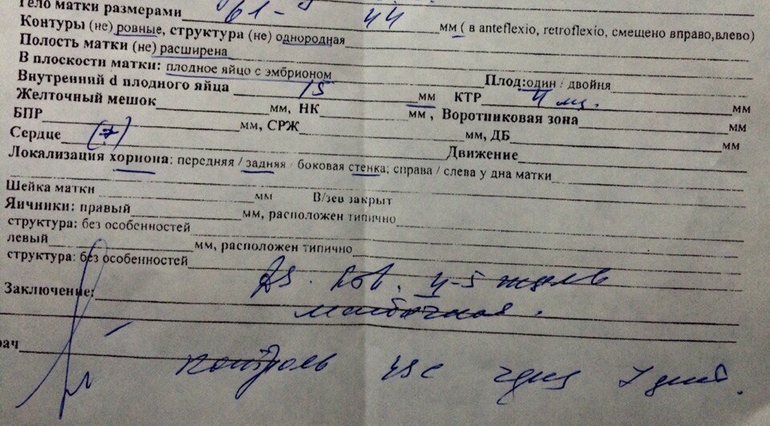 Тело матки размерами 61- 44 мм ( в anteflexio, retroflexio, смещено вправо,влево)
Контуры (не) ровные, структура (не) однородная
Полость матки (не) расширена
В плоскости матки: плодное яйцо с эмбрионом Плод:один / двойня
Внутренний d плодного яйца 15 мм КТР 4 мм
Желточный мешок мм, НК мм , Воротниковая зона мм
БПР мм, СРЖ мм, ДБ мм
Сердце Движение
Локализация хориона: передняя / задняя / боковая стенка; справа / слева у дна матки
Шейка матки мм В/зев закрыт
Яичники: правый мм, расположен типично
структура: без особенностей
левый мм, расположен типично
структура: без особенностей
Заключение: Ds. 4-5 недель
маточная.
рач
контроль УЗС через 7 дней.